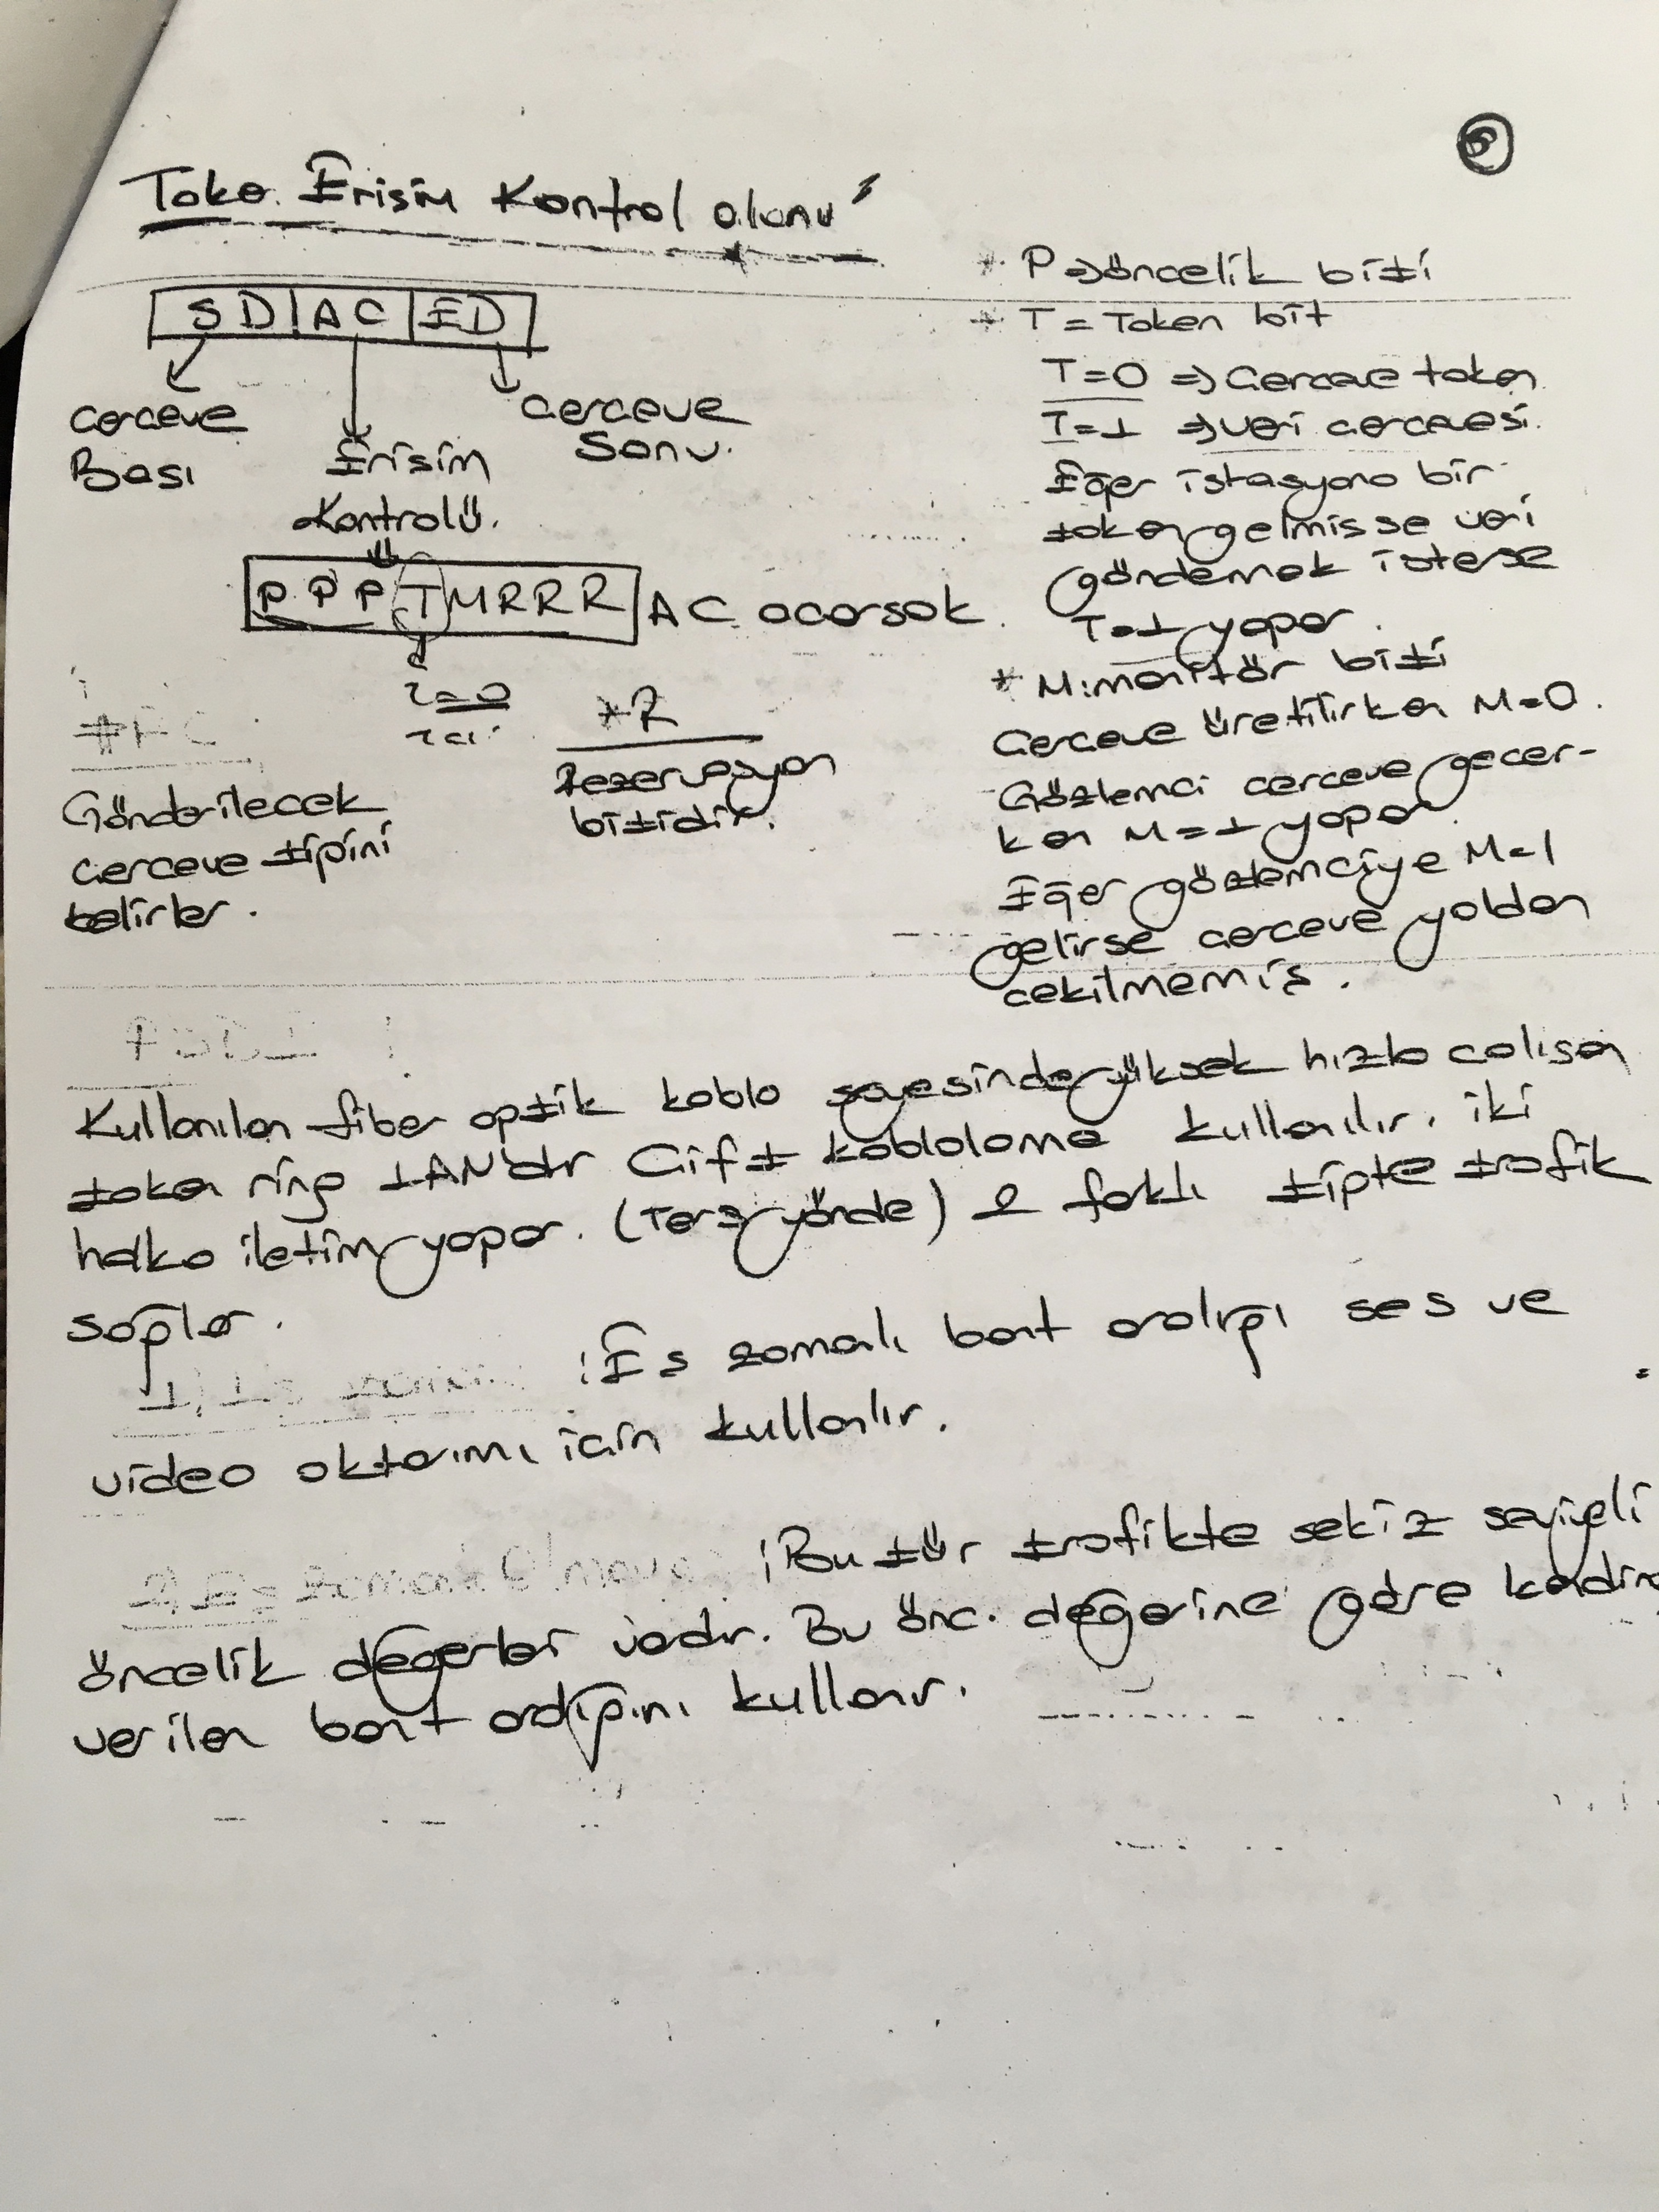 6
Token Erisim Kontrol alanı
SD|AC|ED
cerceve
Bası
Erisim
Kontrolü.
cerceve
Sonu.
PPPTMRRR AC acarsak.
T=0
T=1
* R
Rezervasyon
bitidir.
#FC
Gönderilecek
cerceve tipini
belirler.
* P => öncelik biti
* T = Token bit
T=0 => Cerceve token
T=1 => veri cercevesi.
Eğer istasyona bir
token gelmis se veri
göndemek isterse
T=1 yapar.
* M: monitör biti
Cerceve üretilirken M=0.
Gözlemci cerceve gecer-
ken M=1 yapar.
Eğer gözlemciye M=1
gelirse cerceve yoldan
cekilmemiş.
Kullanılan fiber optik kablo sayesinde yüksek hızla calısan
token ring LAN'dır Cift kablolama kullanılır. iki
halka iletim yapar. (Ters yönde) 2 farklı tipte trafik
sağlar.
: Es zamalı bant aralığı ses ve
video aktarımı icin kullanlır.
: Bu tür trafikte sekiz seviyeli
öncelik değerleri vardır. Bu önc. değerine göre
verilen bant aralığını kullanır.